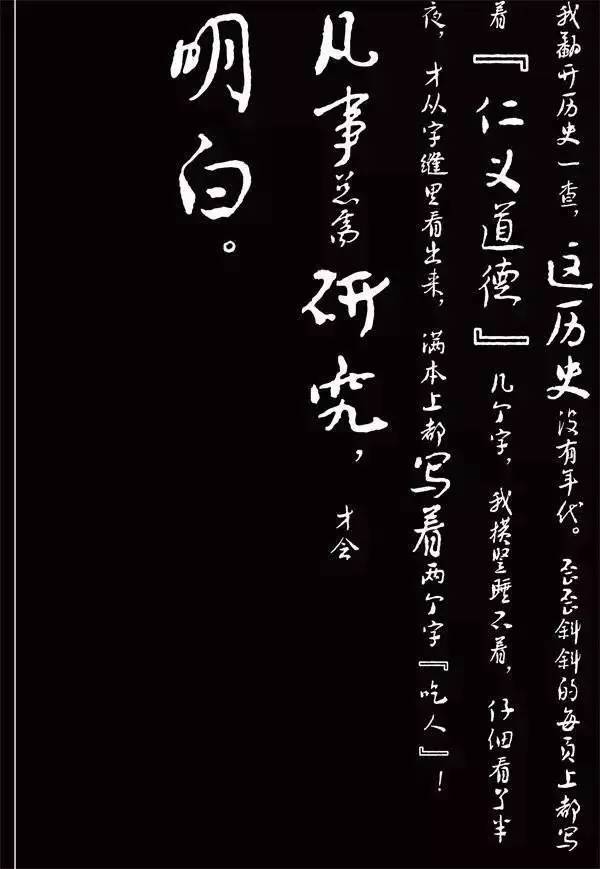 我翻开历史一查，这历史没有年代。歪歪斜斜的每页上都写
着『仁义道德』几个字，我横竖睡不着，仔细看了半
夜，才从字缝里看出来，满本上都写着两个字『吃人』！
凡事总需研究，才会
明白。